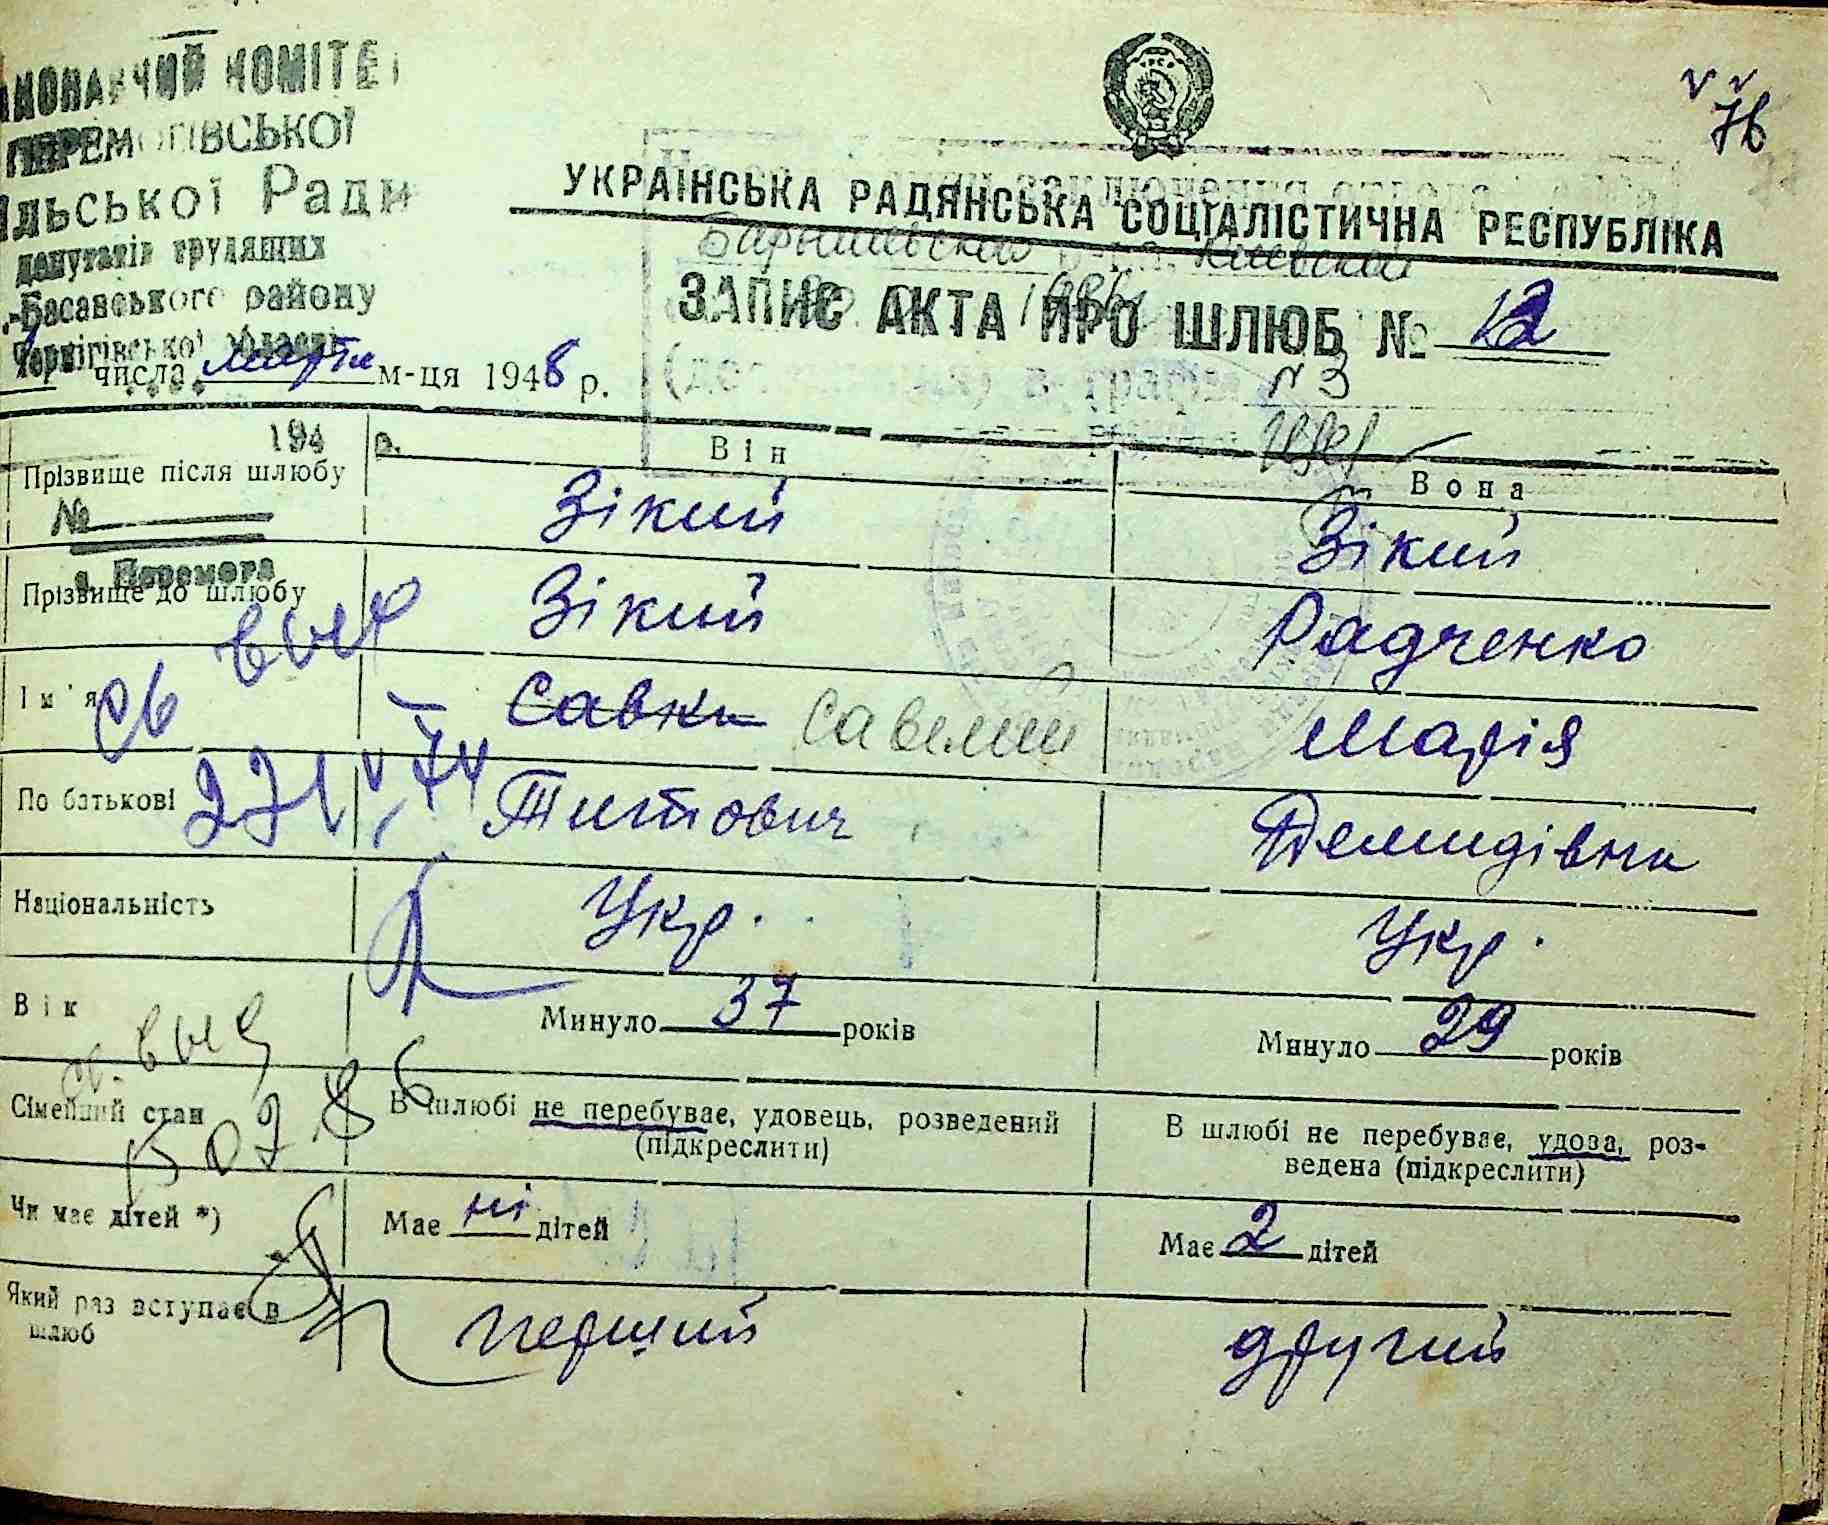 КОНАВЧИЙ КОМІТЕ
ПЕРЕМОГІВСЬКОЇ
ІЛЬСЬКОЇ Ради
депутатів трудящих
.-Басанського району
Чернігівської області
76
УКРАЇНСЬКА РАДЯНСЬКА СОЦІАЛІСТИЧНА РЕСПУБЛІКА
заключения отдела
Барышевского Киевской
ЗАПИС АКТА ПРО ШЛЮБ № 12
числа марта м-ця 1948 р.
в графы N 3
194 р.
Він Вона
Прізвище після шлюбу Зікий Зікий
№
с. Перемога
Прізвище до шлюбу Зікий Радченко
Ім'я Савка Савелий Марія
По батькові Титович Демидівна
Національність Укр. Укр.
Вік Минуло 37 років Минуло 29 років
Сімейний стан В шлюбі не перебуває, удовець, розведений (підкреслити) В шлюбі не перебуває, удова, роз-
ведена (підкреслити)
Чи має дітей *) Має ні дітей Має 2 дітей
Який раз вступає в шлюб перший другий